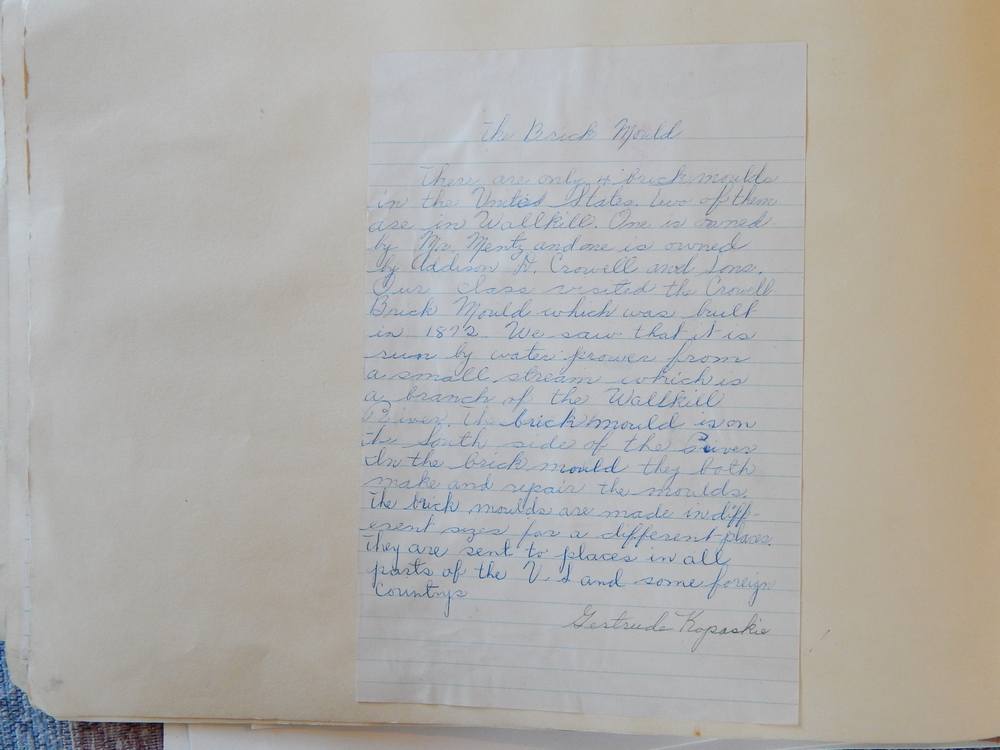 The Brick Mould
There are only 4 brick moulds
in the United States. two of them
are in Wallkill. One is owned
by Mr. Mentz and one is owned
by Addison D. Crowell and Sons.
Our class visited the Crowell
Brick Mould which was built
in 1872. We saw that it is
run by water power from
a small stream which is
a branch of the Wallkill
River. The brick mould is on
the South side of the River
In the brick mould they both
make and repair the moulds.
The brick moulds are made in diff-
erent sizes for a different places.
They are sent to places in all
parts of the U. S and some foreign
countrys
Gertrude Kopaskie